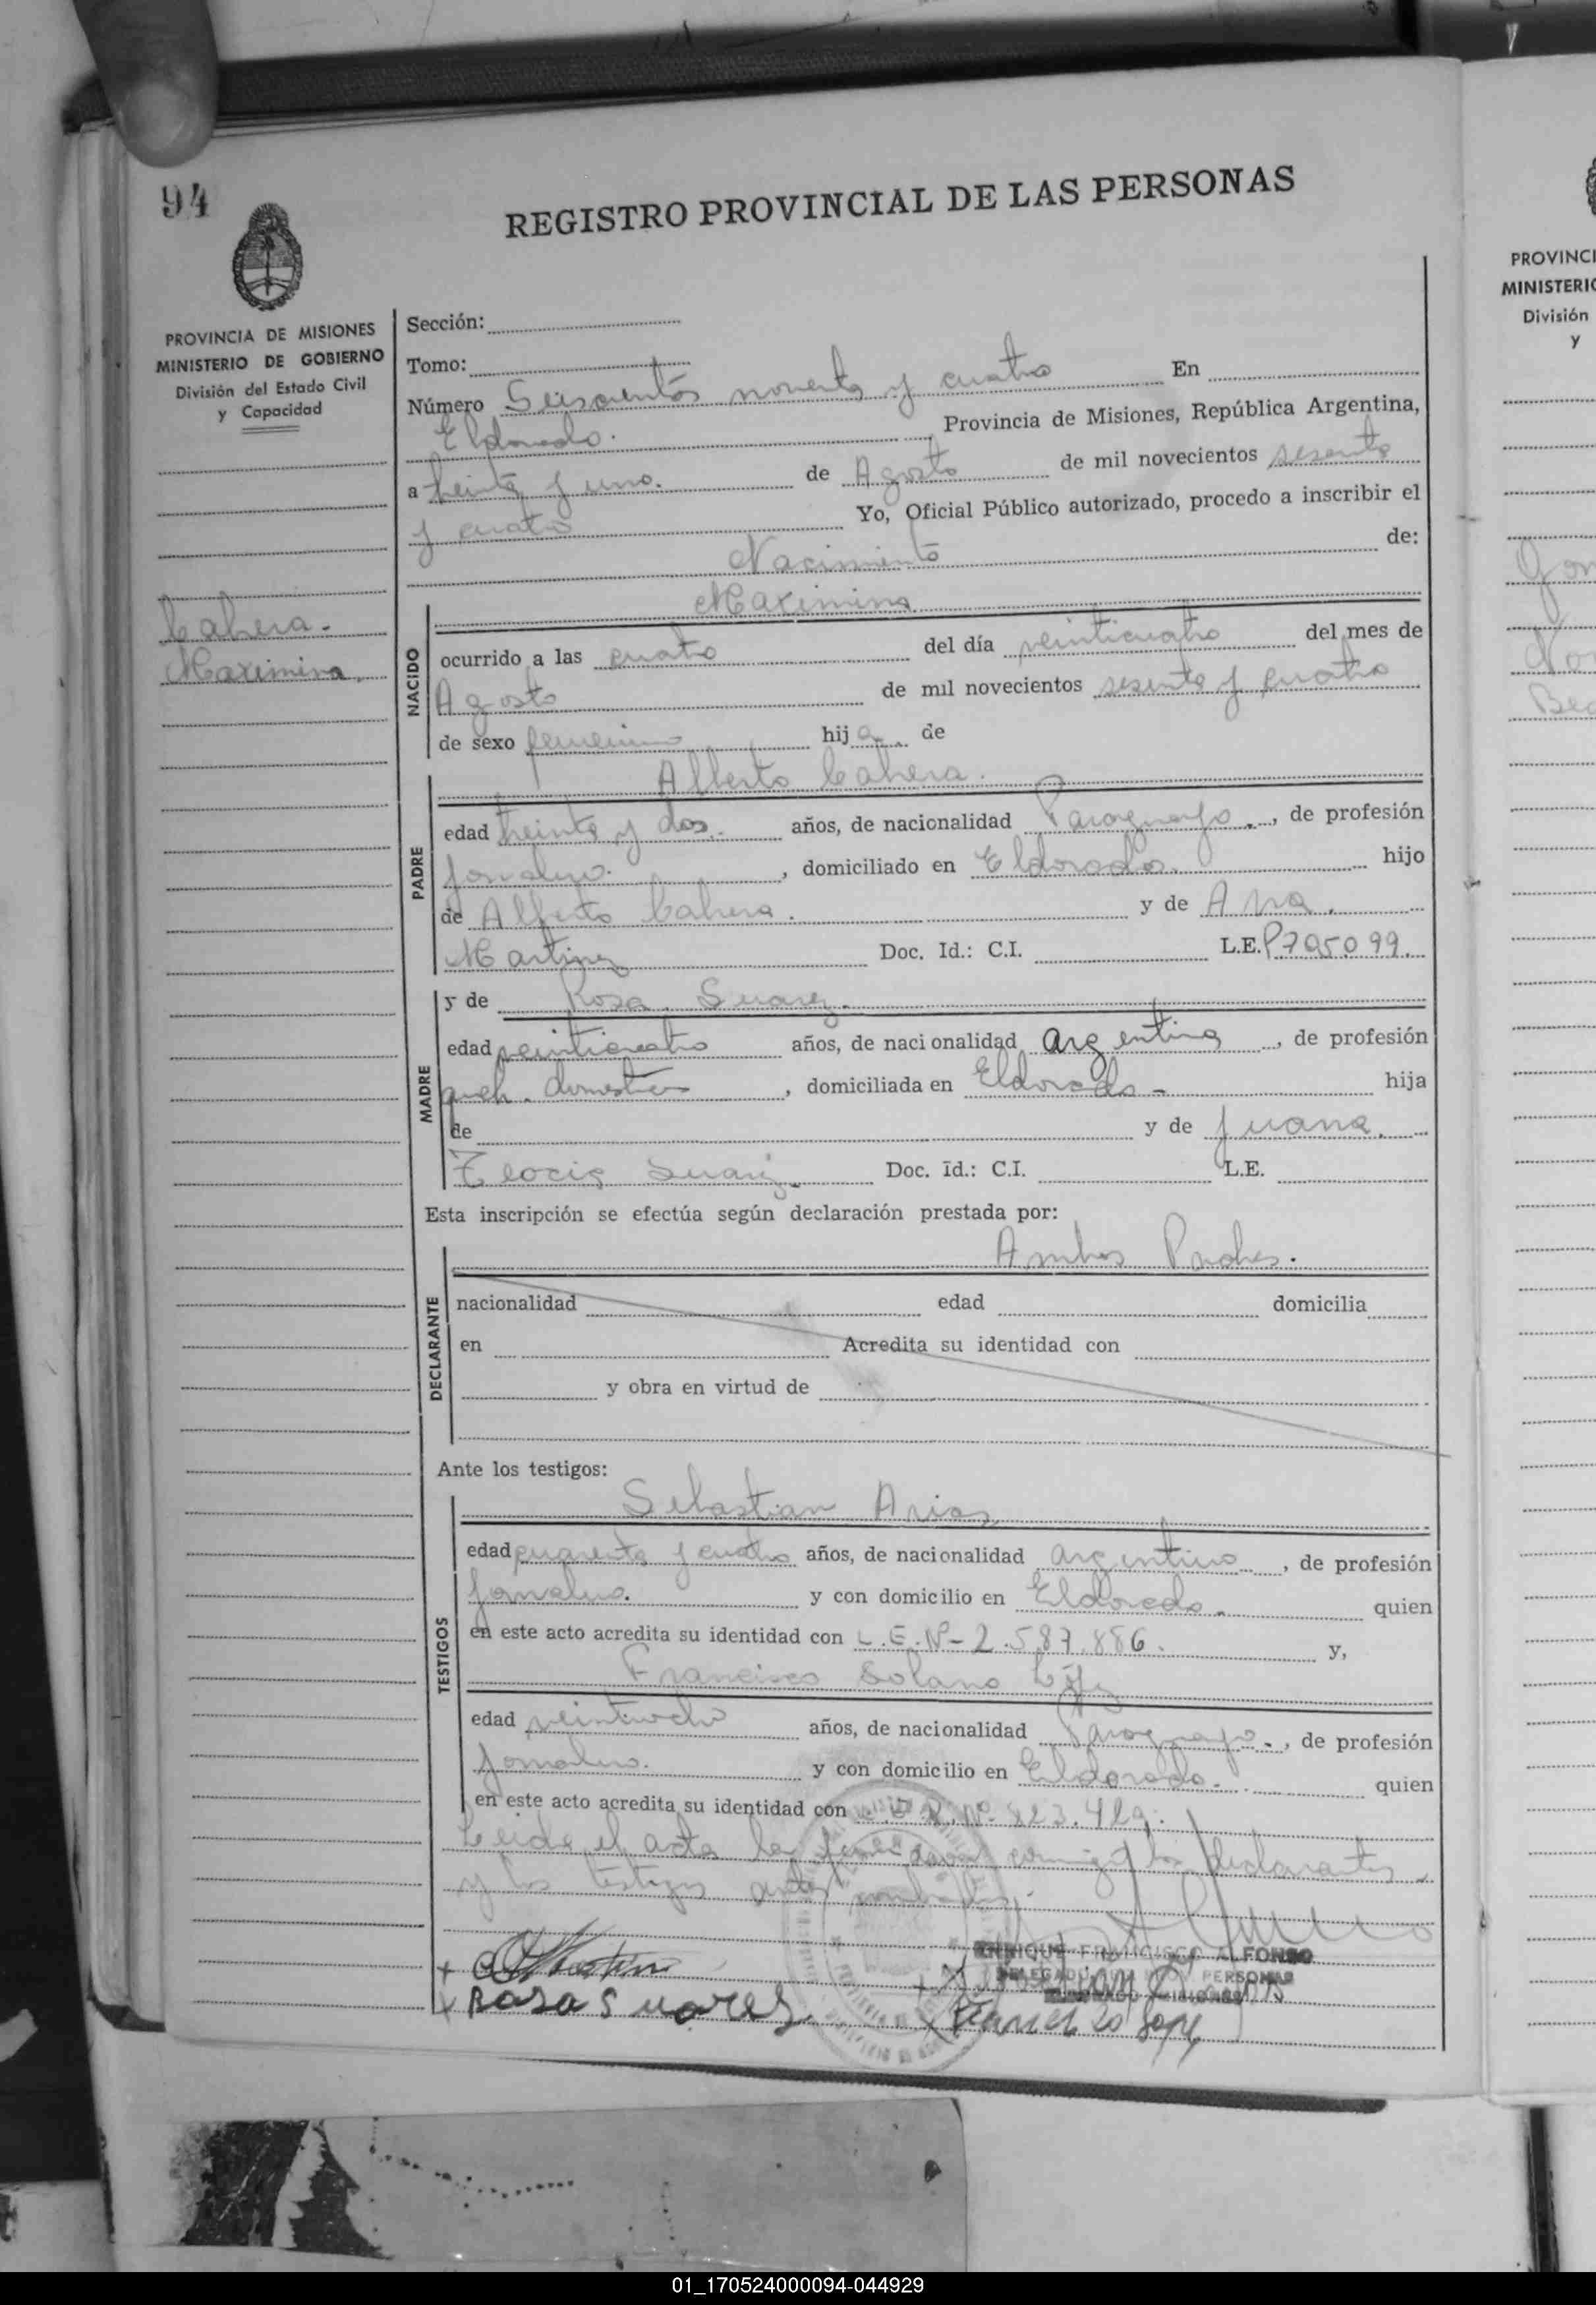 94
REGISTRO PROVINCIAL DE LAS PERSONAS
PROVINCIA DE MISIONES
MINISTERIO DE GOBIERNO
División del Estado Civil
y Capacidad
Cabrera.
Maximina.
Sección:
Tomo:
Número Seiscientos noventa y cuatro En
Eldorado. Provincia de Misiones, República Argentina,
a treinta y uno. de Agosto de mil novecientos sesenta
y cuatro Yo, Oficial Público autorizado, procedo a inscribir el
Nacimiento de:
Maximina
NACIDO
ocurrido a las cuatro del día veinticuatro del mes de
Agosto de mil novecientos sesenta y cuatro
de sexo femenino hija de
Alberto Cabrera.
PADRE
edad treinta y dos. años, de nacionalidad Paraguayo., de profesión
Jornalero. , domiciliado en Eldorado. hijo
de Alberto Cabrera. y de Ana.
Martinez Doc. Id.: C.I. L.E. 795099.
MADRE
y de Rosa Suarez.
edad veinticuatro años, de nacionalidad argentina , de profesión
queh. domesticos , domiciliada en Eldorado - hija
de y de Juana
Suarez. Doc. Id.: C.I. L.E.
Esta inscripción se efectúa según declaración prestada por:
Ambos Padres.
DECLARANTE
nacionalidad edad domicilia
en Acredita su identidad con
y obra en virtud de
Ante los testigos:
Sebastian Arias
TESTIGOS
edad cuarenta y cuatro años, de nacionalidad argentino , de profesión
Jornalero. y con domicilio en Eldorado. quien
en este acto acredita su identidad con L.E.Nº- 2.587.886. y,
Francisco Solano
edad veintiocho años, de nacionalidad Paraguayo. , de profesión
Jornalero. y con domicilio en Eldorado. quien
en este acto acredita su identidad con Nº 823.429.
Leida el acta la firman conmigo los declarantes
y los testigos antes nombrados.
ENRIQUE FRANCISCO ALFONSO
DELEGADO PERSONAS
Rosa Suarez
01_170524000094-044929
PROVINCI
MINISTERIO
División
y